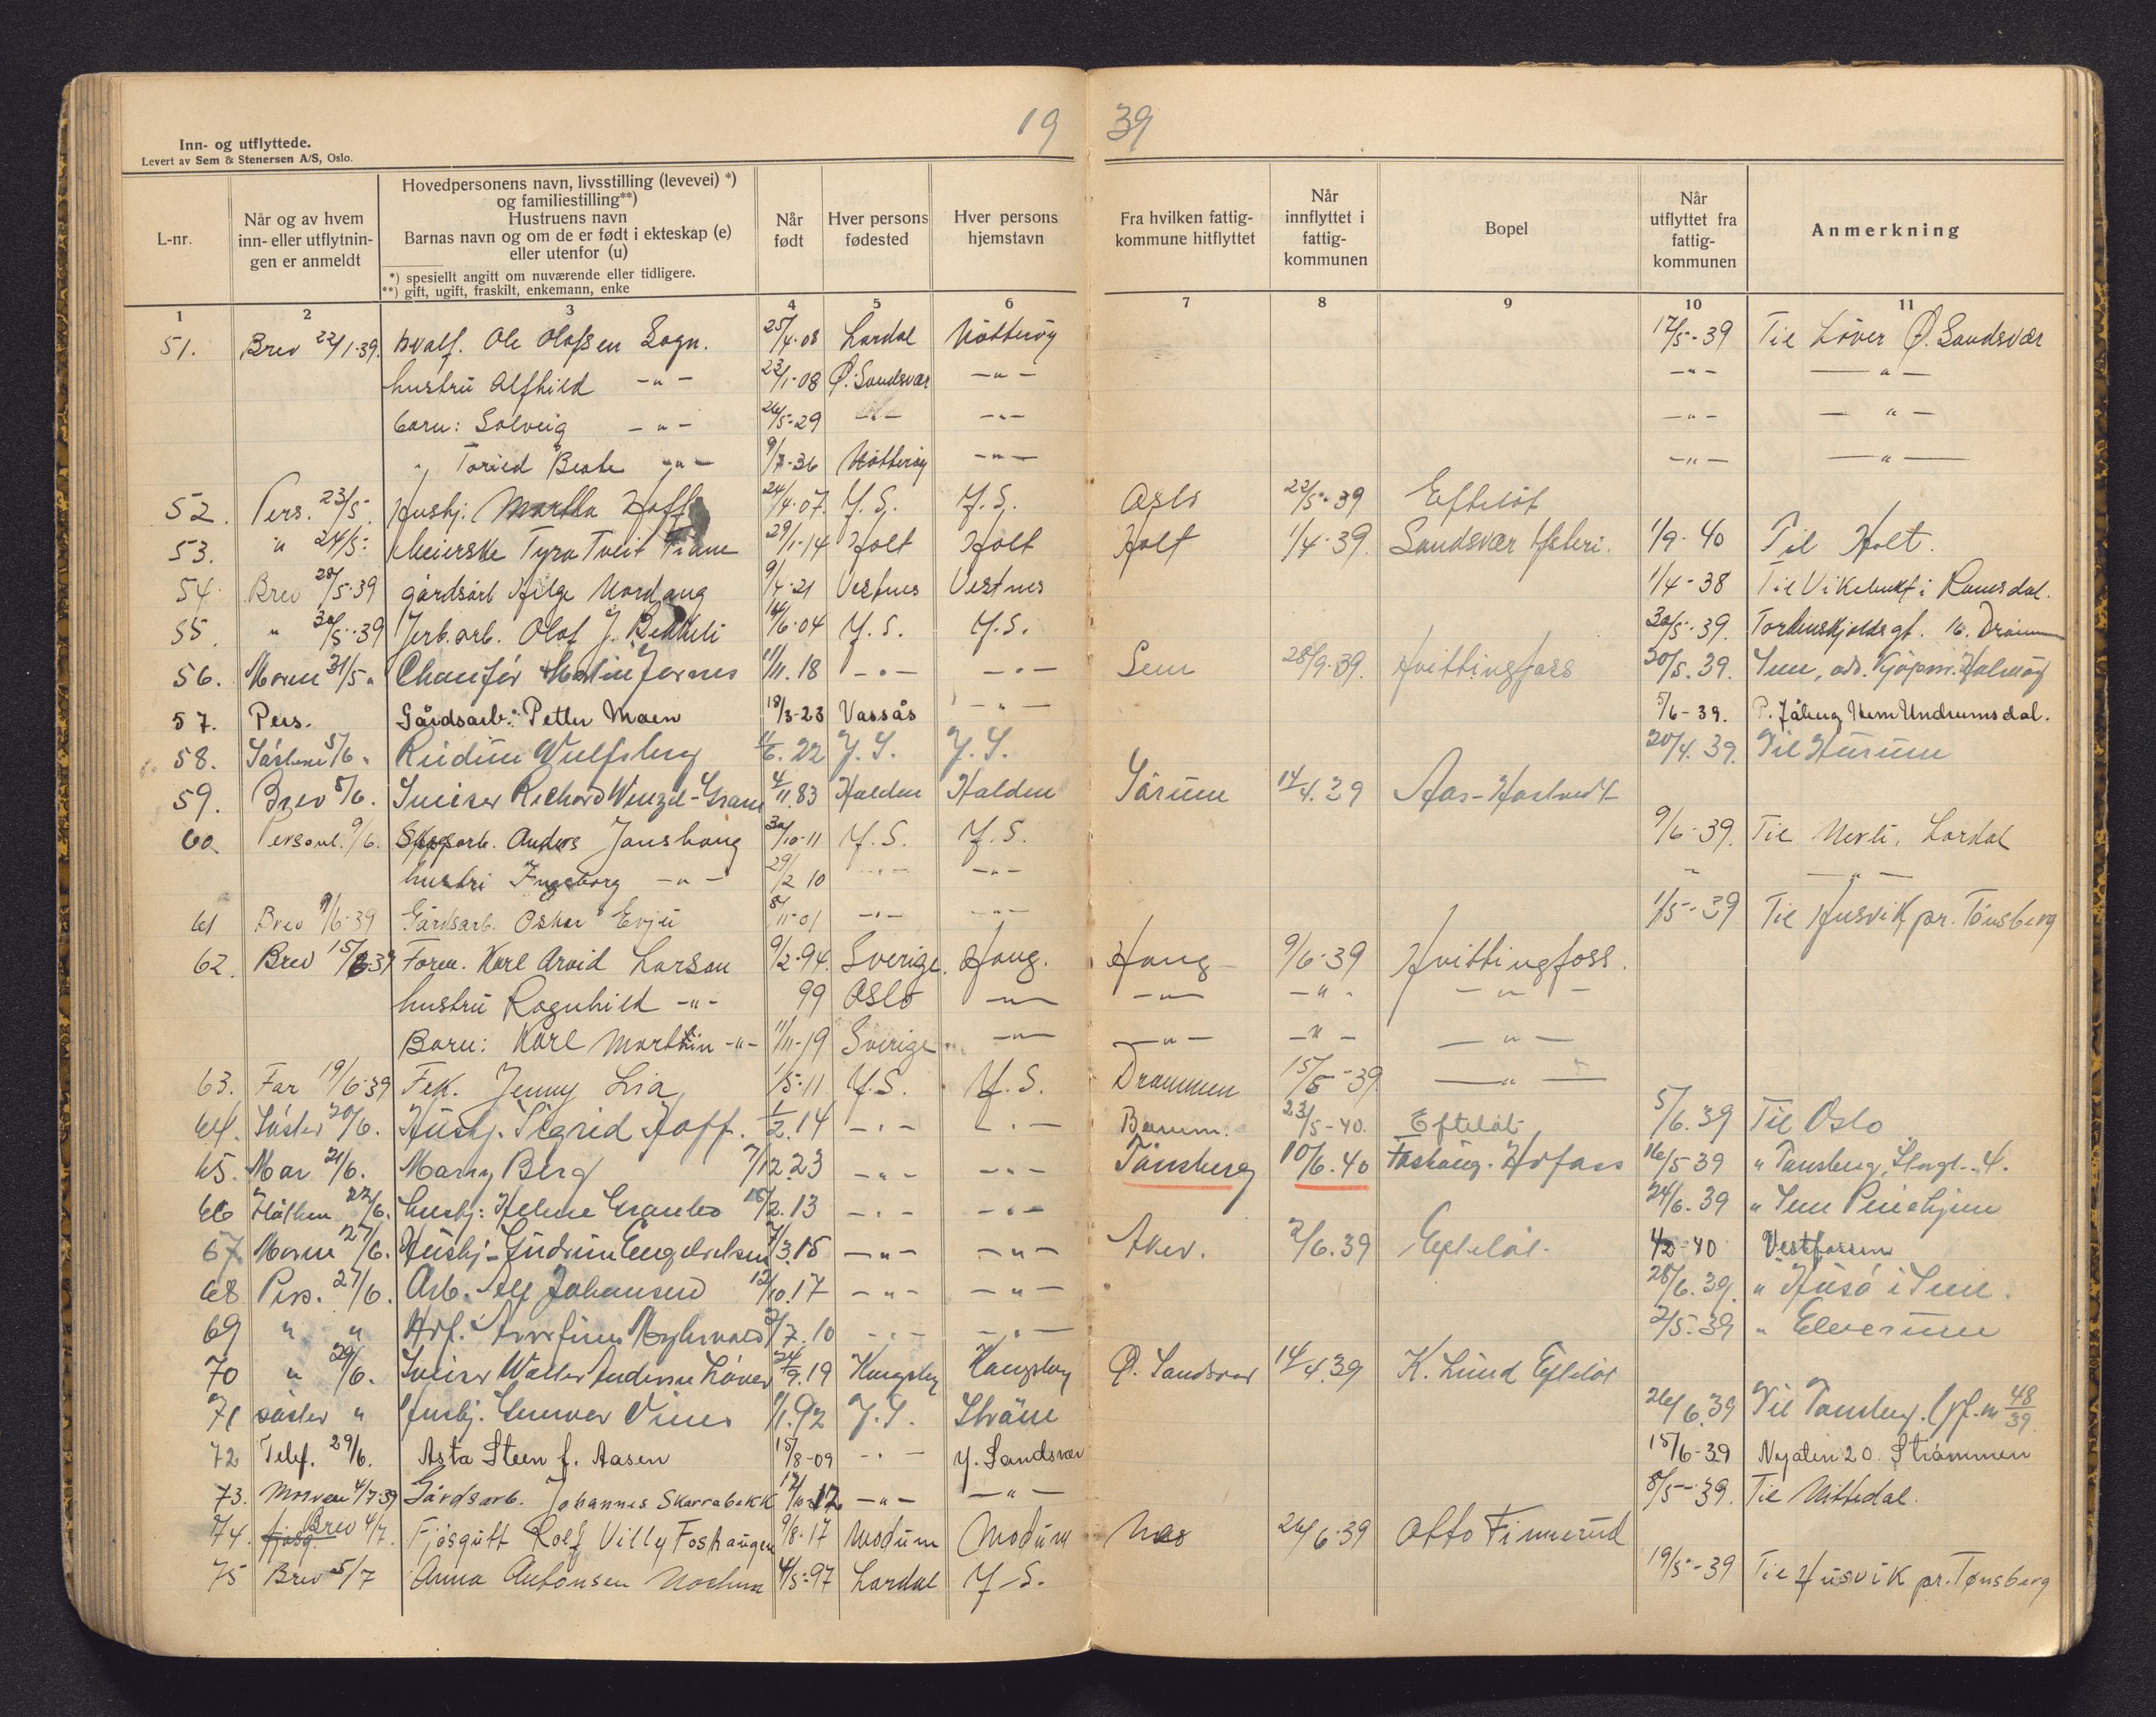 19 39
Inn- og utflyttede.
Levert av Sem & Stenersen A/S, Oslo.
L-nr. Når og av hvem inn- eller utflytnin-gen er anmeldt Hovedpersonens navn, livsstilling (levevei) *) og familiestilling**) Hustruens navn Barnas navn og om de er født i ekteskap (e) eller utenfor (u) *) spesiellt angitt om nuværende eller tidligere. **) gift, ugift, fraskilt, enkemann, enke Når født Hver persons fødested Hver persons hjemstavn Fra hvilken fattig-kommune hitflyttet Når innflyttet i fattig-kommunen Bopel Når utflyttet fra fattig-kommunen Anmerkning
1 2 3 4 5 6 7 8 9 10 11
51. Brev 22/1-39. hvalf. Ole Olafsen Sogn. 25/4-08 Lardal Nøtterøy 17/5-39 Til Løver Ø. Sandsvær
hustru Alfhild -"- 23/1-08 Ø. Sandsvær -"- -"- -"-
barn: Solveig -"- 26/5-29 -"- -"- -"- -"-
" Torild Beate -"- 9/7-36 Nøtterøy -"- -"- -"-
52. Pers. 23/5. Hushj. Martha Hoff 24/4-07. Y.S. Y.S. Oslo 22/5-39 Efteløt
53. " 24/5- Meierske Tyra Tveit 29/1-14 Holt Holt Holt 1/4-39. Sandsvær Ysteri. 1/9-40 Til Holt.
54. Brev 28/5-39 gårdsarb Helge Nordang 9/4-21 Vestnes Vestnes 1/4-38 Til Vikebukt i Romsdal.
55. " 30/5-39 Jerb.arb. Olof J. Bekkeli 14/6-04 Y.S. Y.S. 30/5-39. Tordenskjolds gt. 16. Drammen
56. Moren 31/5 " Chaufør Martin Jornes 11/11.18 -"- -"- Sem 28/9-39. Hvittingfoss 20/5.39. Sem, ads. Kjøpm.
57. Pers. Gårdsarb.: Petter Moen 18/3-23 Vassås -"- 5/6-39. P. Jåberg Hem Undrumsdal.
58. 5/6 " Reidun Wulfsberg 11/6.22 Y.S. Y.S. 20/4.39. Til Hurum
59. Brev 5/6. Sveiser Richard Wenzel-Gram 4/11.83 Halden Halden Sørum 14/4.39 Aas-Hostvedt
60. Personl. 9/6. Skogsarb. Anders Janshaug 30/10-11 Y.S. Y.S. 9/6-39. Til Nerli, Lardal
hustru Ingeborg -"- 29/2 10 -"- -"- " -"-
61 Brev 9/6-39 Gårdsarb. Oskar Evju 8/11-01 -"- -"- 1/5-39 Til Husvik, pr. Tønsberg
62. Brev 15/6-39 Form. Karl Arvid Larsen 9/2-94. Sverige. Haug. Haug 9/6-39 Hvittingfoss.
hustru Ragnhild -"- 99 Oslo -"- -"- -"- -"-
Barn: Karl Martin -"- 11/11-19 Sverige -"- -"- -"- -"-
63. Far 19/6-39 Frk. Jenny Lia 1/5-11 Y.S. Y.S. Drammen 15/5-39 -"-
64. Søster 20/6. Hushj. Sigrid Hoff. 1/2.14 -"- -"- Bærum. 23/5-40. Efteløt 5/6.39 Til Oslo
65. Mor 21/6. Marry Berg 7/12.23 -"- -"- Tønsberg 10/6.40 Foshaug. Hvfoss 16/5 39 " Tønsberg, Storgt. 4.
66 22/6. hushj: Helene 18/2.13 -"- -"- 24/6.39 " Sem Pleiehjem
67 Moren 27/6. Hushj- Gudrun Engebretsen 7/3.15 -"- -"- Aker. 2/6.39 Efteløt. 4/2-40 Vestfossen
68 Pers. 27/6. Arb. Alf Johansen 12/10.17 -"- -"- 28/6.39. " Husø i Sem.
69 " " Hvf. Arnfinn Myhrvold 2/7.10 -"- -"- 2/5-39 " Elverum
70 " 29/6. Sveiser Walter Andersen Løver 24/9.19 Kongsberg Kongsberg Ø. Sandsvær 14/4.39 K. Lund Efteløt
71 søster " Hushj. Gunvor 9/1.92 Y.S. Strøm 26/6.39 Til Tønsberg. (jf. nr 48/39.
72 Telef. 29/6. Asta Steen f. Aasen 15/8-09 -"- Y. Sandsvær 15/6-39 Nygaten 20. Strømmen
73. Morven 4/7-39 Gårdsarb. Johannes Skarrabekk 12/10-12 -"- -"- 8/5-39. Til Nittedal.
74. fjøsg. Brev 4/7. Fjøsgutt Rolf Villy Foshaugen 9/8-17 Modum Modum Nes 26/6-39 Otto Finnerud
75 Brev 5/7 Anna Antonsen Nochum 4/5-97 Lardal Y.S. 19/5-39 Til Husvik pr. Tønsberg